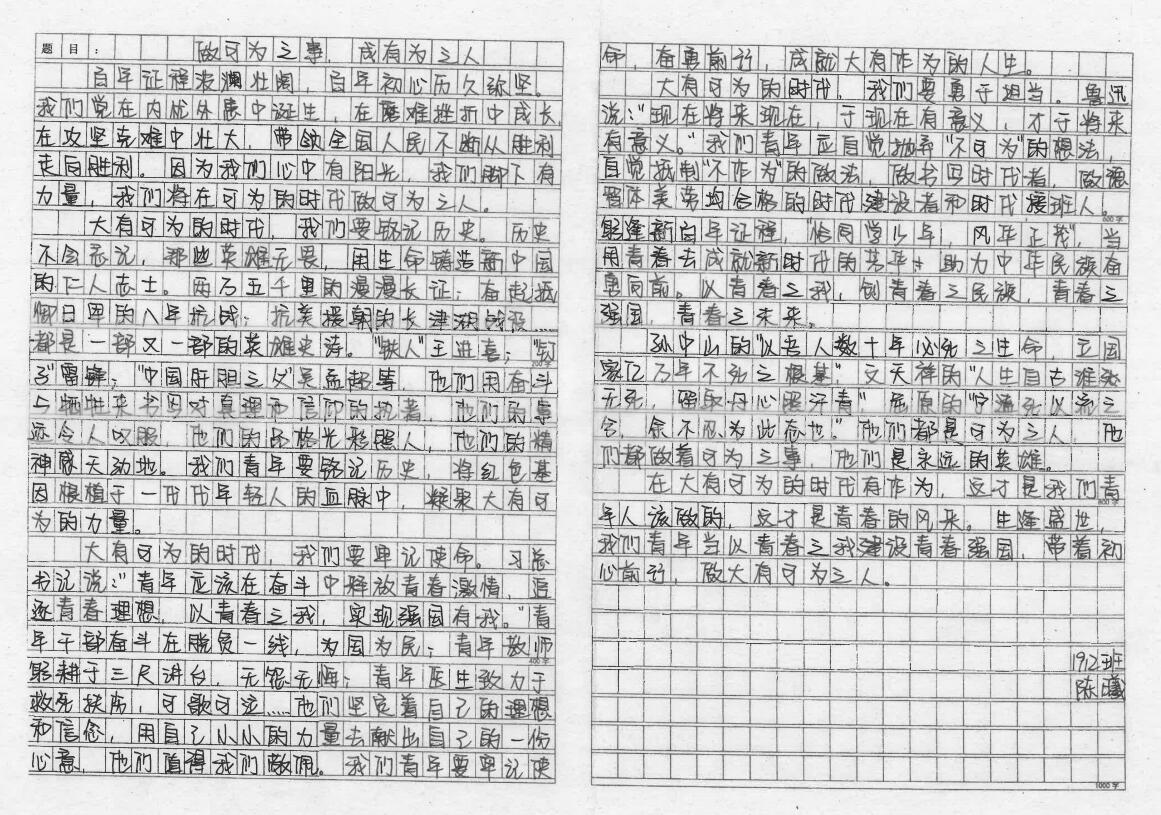 题目： 做可为之事，成有为之人
百年征程波澜壮阔，百年初心历久弥坚。
我们党在内忧外患中诞生，在磨难挫折中成长，
在攻坚克难中壮大，带领全国人民不断从胜利
走向胜利。因为我们心中有阳光，我们脚下有
力量，我们将在可为的时代做可为之人。
大有可为的时代，我们要铭记历史。历史
不会忘记，那些英雄无畏，用生命铸造新中国
的仁人志士。两万五千里的漫漫长征；奋起抵
御日军的八年抗战；抗美援朝的长津湖战役……
都是一部又一部的英雄史诗。“铁人”王进喜；“钉
200字
子”雷锋；“中国肝胆之父”吴孟超等，他们用奋斗
与牺牲来书写对真理和信仰的执着，他们的事
迹令人叹服，他们的品格光彩照人，他们的精
神感天动地。我们青年要铭记历史，将红色基
因根植于一代代年轻人的血脉中，凝聚大有可
为的力量。
大有可为的时代，我们要牢记使命。习总
书记说：“青年应该在奋斗中释放青春激情，追
逐青春理想，以青春之我，实现强国有我。”青
年干部奋斗在脱贫一线，为国为民；青年教师
400字
躬耕于三尺讲台，无怨无悔；青年医生致力于
救死扶伤，可歌可泣……他们坚定着自己的理想
和信念，用自己小小的力量去献出自己的一份
心意，他们值得我们敬佩。我们青年要牢记使
命，奋勇前行，成就大有作为的人生。
大有可为的时代，我们要勇于担当。鲁迅
说：“现在将来现在，于现在有意义，才于将来
有意义。”我们青年应自觉抛弃“不可为”的想法，
自觉抵制“不作为”的做法，做书写时代者，做德
智体美劳均合格的时代建设者和时代接班人。
600字
躬逢新百年证程，“恰同学少年，风华正茂”，当
用青春去成就新时代的芳华，助力中华民族奋
勇向前。以青春之我，创青春之民族，青春之
强国，青春之未来。
孙中山的“以吾人数十年必死之生命，立国
家亿万年不死之根基”，文天祥的“人生自古谁死
无死，留取丹心照汗青”，屈原的“宁溘死以流亡
兮，余不忍为此态也。”他们都是可为之人，他
们都做着可为之事，他们是永远的英雄。
在大有可为的时代有作为，这才是我们青
800字
年人该做的，这才是青春的风采。生逢盛世，
我们青年当以青春之我建设青春强国，带着初
心前行，做大有可为之人。
1912班
陈曦
1000字